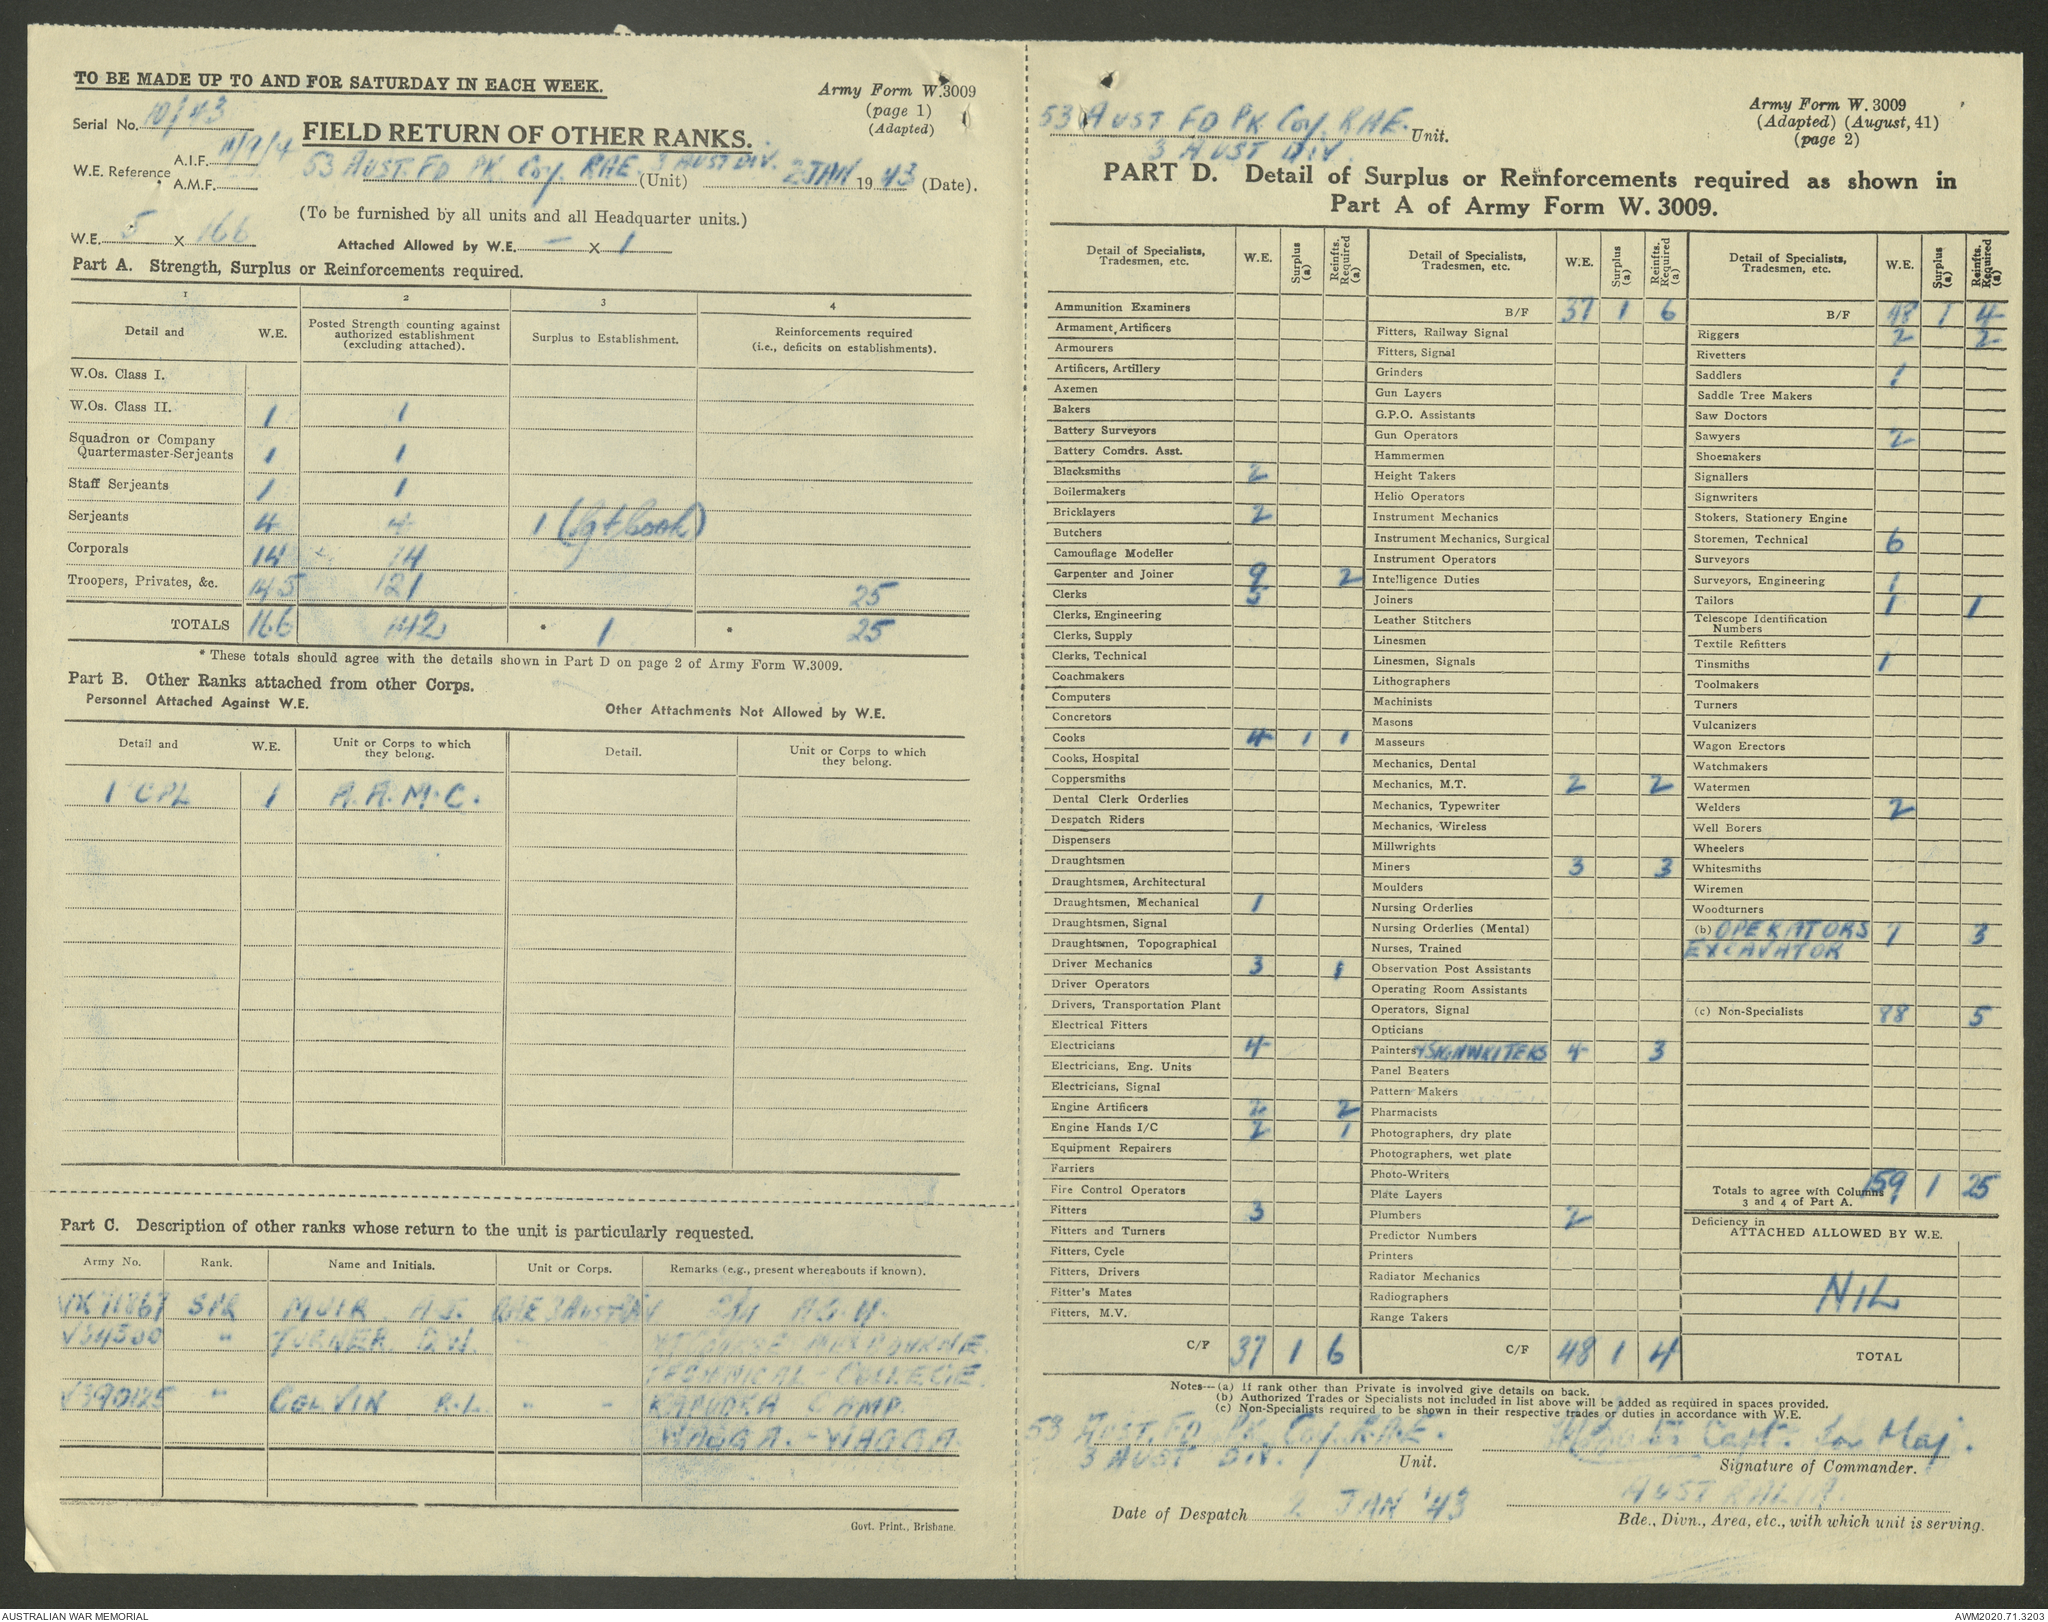 TO BE MADE UP TO AND FOR SATURDAY IN EACH WEEK.
Army Form W.3009
(page 1)
(Adapted)
Serial No. 10/43
FIELD RETURN OF OTHER RANKS.
W.E. Reference
A.I.F. 11/9/4
A.M.F.
53 AUST. FD PK Coy. RAE. 3 AUST DIV. (Unit) 2 JAN 1943 (Date).
(To be furnished by all units and all Headquarter units.)
W.E. 5 x 166
Attached Allowed by W.E. — x 1
Part A. Strength, Surplus or Reinforcements required.
1 2 3 4
Detail and W.E. Posted Strength counting against authorized establishment (excluding attached). Surplus to Establishment. Reinforcements required (i.e., deficits on establishments).
W.Os. Class I.
W.Os. Class II. 1 1
Squadron or Company Quartermaster-Serjeants 1 1
Staff Serjeants 1 1
Serjeants 4 4 1 (Sgt Cook)
Corporals 14 14
Troopers, Privates, &c. 145 121 25
TOTALS 166 142 * 1 * 25
* These totals should agree with the details shown in Part D on page 2 of Army Form W.3009.
Part B. Other Ranks attached from other Corps.
Personnel Attached Against W.E.
Other Attachments Not Allowed by W.E.
Detail and W.E. Unit or Corps to which they belong. Detail. Unit or Corps to which they belong.
1 CPL 1 A.A.M.C.
Part C. Description of other ranks whose return to the unit is particularly requested.
Army No. Rank. Name and Initials. Unit or Corps. Remarks (e.g., present whereabouts if known).
VX71867 SPR MUIR A.J. RAE 3 AUST DIV A.G.H.
V34500 " TURNER D.W. " MELBOURNE
TECHNICAL - COLLEGE.
V390125 " COLVIN R.L. " - KAPOOKA CAMP.
WAGGA. - WAGGA
Govt. Print., Brisbane.
53 AUST FD PK Coy. RAE. Unit.
3 AUST DIV.
Army Form W. 3009
(Adapted) (August, 41)
(page 2)
PART D. Detail of Surplus or Reinforcements required as shown in
Part A of Army Form W. 3009.
Detail of Specialists, Tradesmen, etc. W.E. Surplus (a) Reinfts. Required (a)
Ammunition Examiners
Armament Artificers
Armourers
Artificers, Artillery
Axemen
Bakers
Battery Surveyors
Battery Comdrs. Asst.
Blacksmiths 2
Boilermakers
Bricklayers 2
Butchers
Camouflage Modeller
Carpenter and Joiner 9 2
Clerks 5
Clerks, Engineering
Clerks, Supply
Clerks, Technical
Coachmakers
Computers
Concretors
Cooks 4 1 1
Cooks, Hospital
Coppersmiths
Dental Clerk Orderlies
Despatch Riders
Dispensers
Draughtsmen
Draughtsmen, Architectural
Draughtsmen, Mechanical 1
Draughtsmen, Signal
Draughtsmen, Topographical
Driver Mechanics 3 1
Driver Operators
Drivers, Transportation Plant
Electrical Fitters
Electricians 4
Electricians, Eng. Units
Electricians, Signal
Engine Artificers 2 2
Engine Hands I/C 2 1
Equipment Repairers
Farriers
Fire Control Operators
Fitters 3
Fitters and Turners
Fitters, Cycle
Fitters, Drivers
Fitter's Mates
Fitters, M.V.
C/F 37 1 6
Detail of Specialists, Tradesmen, etc. W.E. Surplus (a) Reinfts. Required (a)
B/F 37 1 6
Fitters, Railway Signal
Fitters, Signal
Grinders
Gun Layers
G.P.O. Assistants
Gun Operators
Hammermen
Height Takers
Helio Operators
Instrument Mechanics
Instrument Mechanics, Surgical
Instrument Operators
Intelligence Duties
Joiners
Leather Stitchers
Linesmen
Linesmen, Signals
Lithographers
Machinists
Masons
Masseurs
Mechanics, Dental
Mechanics, M.T. 2 2
Mechanics, Typewriter
Mechanics, Wireless
Millwrights
Miners 3 3
Moulders
Nursing Orderlies
Nursing Orderlies (Mental)
Nurses, Trained
Observation Post Assistants
Operating Room Assistants
Operators, Signal
Opticians
Painters & SIGNWRITERS 4 3
Panel Beaters
Pattern Makers
Pharmacists
Photographers, dry plate
Photographers, wet plate
Photo-Writers
Plate Layers
Plumbers 2
Predictor Numbers
Printers
Radiator Mechanics
Radiographers
Range Takers
C/F 48 1 4
Detail of Specialists, Tradesmen, etc. W.E. Surplus (a) Reinfts. Required (a)
B/F 48 1 4
Riggers 2 2
Rivetters
Saddlers 1
Saddle Tree Makers
Saw Doctors
Sawyers 2
Shoemakers
Signallers
Signwriters
Stokers, Stationery Engine
Storemen, Technical 6
Surveyors
Surveyors, Engineering 1
Tailors 1 1
Telescope Identification Numbers
Textile Refitters
Tinsmiths 1
Toolmakers
Turners
Vulcanizers
Wagon Erectors
Watchmakers
Watermen
Welders 2
Well Borers
Wheelers
Whitesmiths
Wiremen
Woodturners
(b) OPERATORS 7 3
EXCAVATOR
(c) Non-Specialists 88 5
Totals to agree with Columns 3 and 4 of Part A. 159 1 25
Deficiency in
ATTACHED ALLOWED BY W.E.
NIL
TOTAL
Notes—(a) If rank other than Private is involved give details on back.
(b) Authorized Trades or Specialists not included in list above will be added as required in spaces provided.
(c) Non-Specialists required to be shown in their respective trades or duties in accordance with W.E.
53 AUST. FD PK Coy. R.A.E.
3 AUST DIV.
Unit.
Capt. for Maj.
Signature of Commander.
Date of Despatch 2 JAN '43
AUSTRALIA.
Bde., Divn., Area, etc., with which unit is serving.
AUSTRALIAN WAR MEMORIAL
AWM2020.71.3203